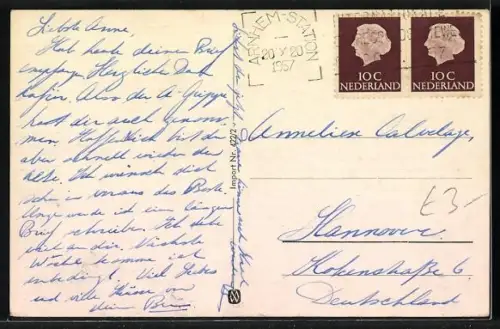 Liebste Anne,
Hab heute deinen Brief
empfangen. Herzliche Dank
hafür. Also der A-Grippe
hast dir auch genom-
men. Hoffentlich bist du
aber schnell wieder der
alte. Ich wünsch dich
schon im voraus das Beste.
werde ich ein längen
Brief schreiben. Ich habe
dir. Nächste
Woche komme ich
unbedingt. Viel Liebes
und viele Küsse von
dein
Import Nr. 422/2
ARNHEM-STATION
20 X 20
1957
10 C
NEDERLAND
10 C
NEDERLAND
Annelien Calvelage,
Hannover
Hohenstraße 6
Deutschland
£3-